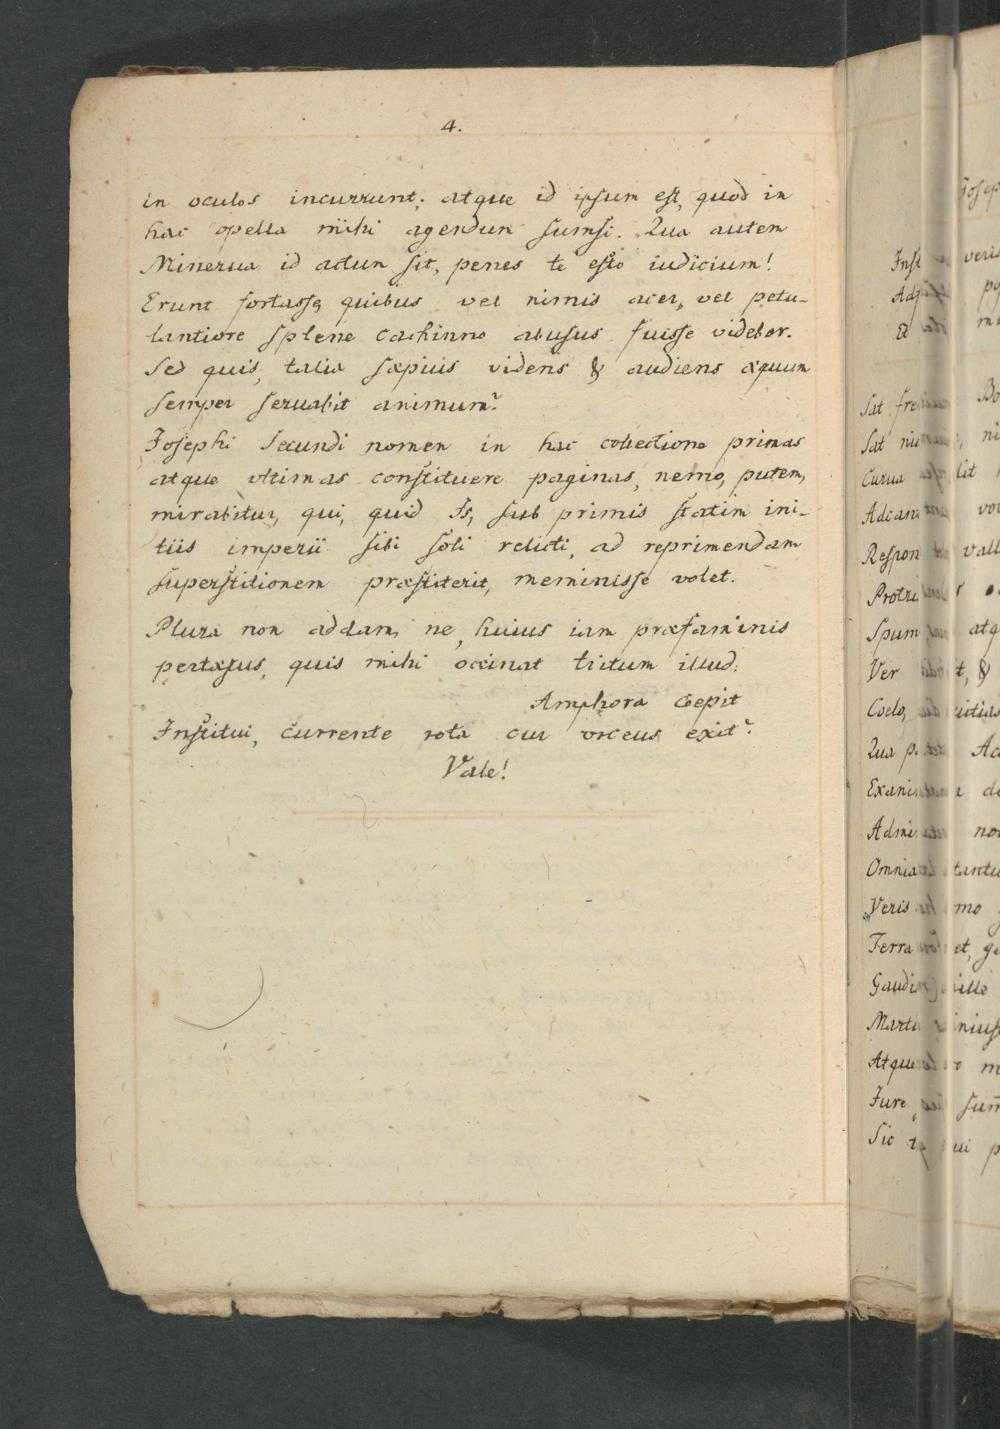 4.
in oculos incurrunt; atque id ipsum est, quod in
hac opella mihi agendum sumsi. Qua autem
Minerua id actum sit, penes te esto iudicium!
Erunt fortasse, quibus vel nimis acer, vel petu-
lantiore splene cachinno abusus fuisse videbor.
Sed quis, talia sæpius videns & audiens æquum
semper seruabit animum?
Josephi Secundi nomen in hac collectione primas
atque vltimas constituere paginas, nemo, putem,
mirabitur, qui, quid Is, sub primis statim ini-
tiis imperii sibi soli relicti, ad reprimendam
superstitionem præstiterit, meminisse volet.
Plura non addam, ne, huius iam præfaminis
pertæsus, quis mihi occinat tritum illud:
Amphora coepit
Institui, currente rota cur vrceus exit?
Vale!
Sat
Sat
Curua
Respon
Spum
Ver
Coelo,
Qua
Omnia
Veris
Terra
Atque
Jure
Sic